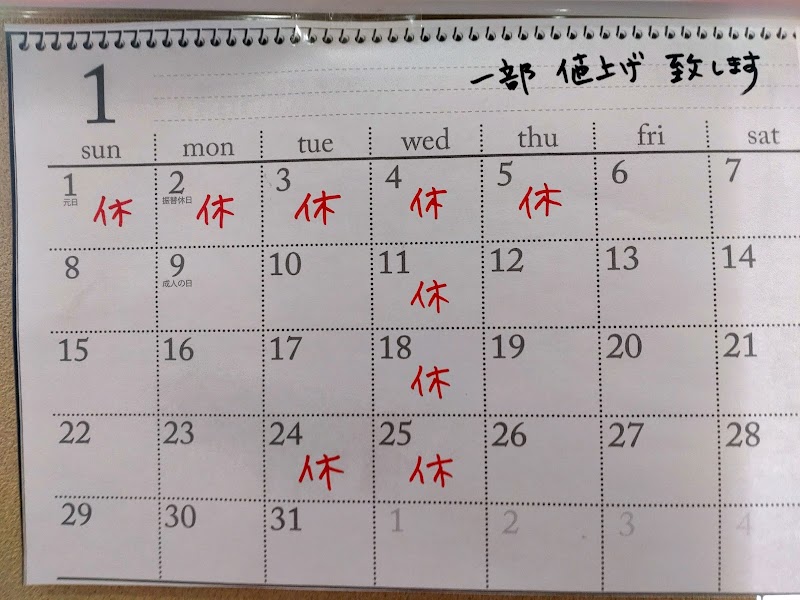 1
一部 値上げ 致します
sun mon tue wed thu fri sat
1 2 3 4 5 6 7
元日 休 振替休日 休 休 休 休
8 9 10 11 12 13 14
成人の日 休
15 16 17 18 19 20 21
休
22 23 24 25 26 27 28
休 休
29 30 31 1 2 3 4